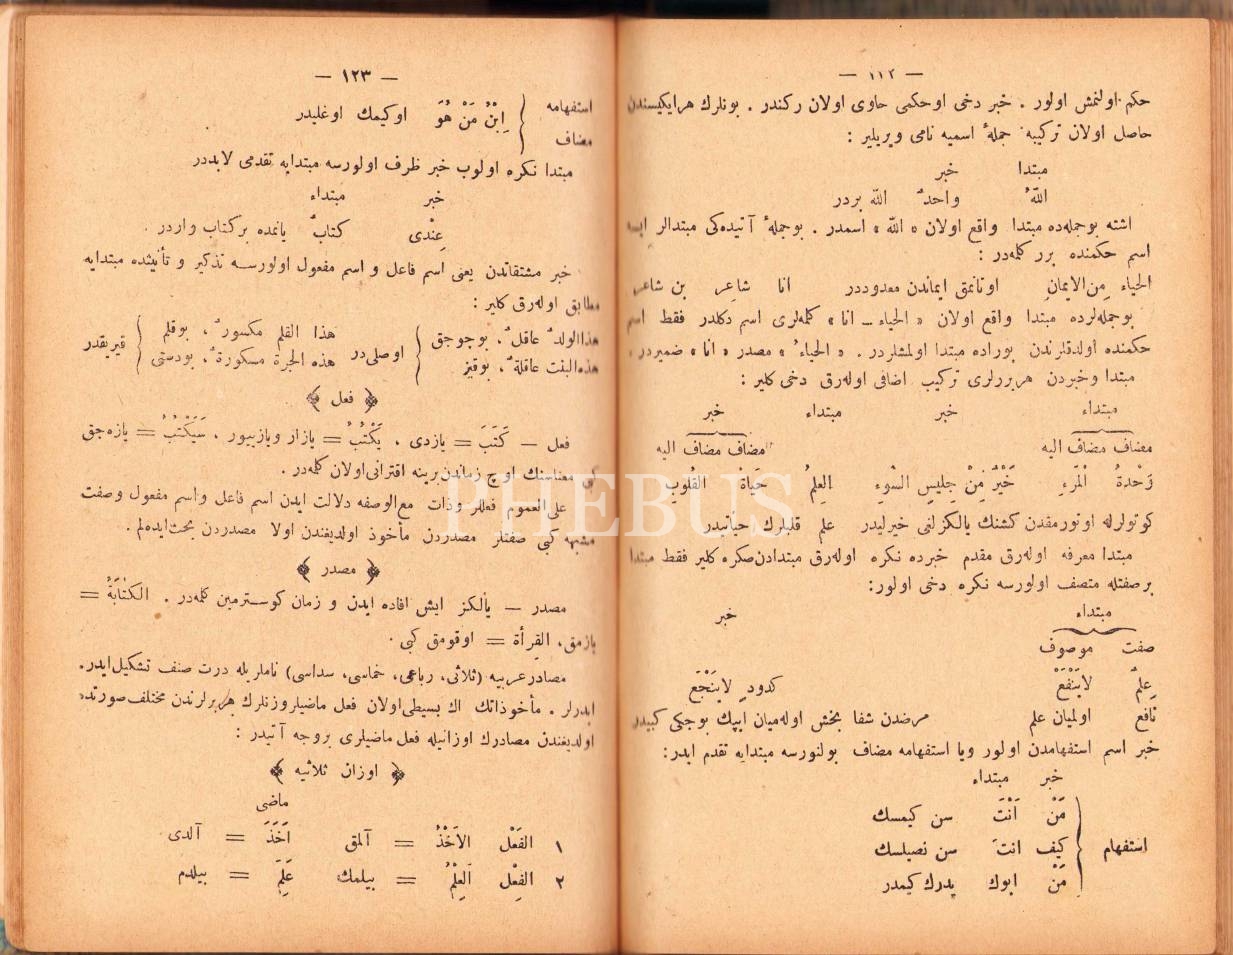 — ١١٢ —
حكم اولنمش اولور . خبر دخى اوحكمى حاوى اولان ركندر . بونلرك هرايكيسندن
حاصل اولان تركيبه جملهٔ اسميه نامى ويريلير :
مبتدا خبر
اللّٰهُ واحدٌ اللّٰه بردر
اشته بوجمله‌ده مبتدا واقع اولان « اللّٰه » اسمدر . بوجملهٔ آتيده‌كى مبتدالر ايسه
اسم حكمنده برر كلمه‌در :
الحياء مِن الايمانِ اوتانمق ايماندن معدوددر انا شاعِر بن شاعرم
بوجمله‌لرده مبتدا واقع اولان « الحياء ــ انا » كلمه‌لرى اسم دكلدر فقط اسم
حكمنده اولدقلرندن بوراده مبتدا اولمشلردر . « الحياءُ » مصدر « انا » ضميردر .
مبتدا وخبردن هربررلرى تركيب اضافى اوله‌رق دخى كلير :
مبتداء خبر مبتداء خبر
مضاف مضاف اليه مضاف مضاف اليه
وَحْدةُ الْمَرءِ خَيْرٌ مِنْ جِليسِ السّوءِ العِلمُ حَياةُ القُلوبِ
كوتولرله اوتورمقدن كشنك يالكزلغى خيرليدر علم قلبلرك حياتيدر
مبتدا معرفه اوله‌رق مقدم خبرده نكره اوله‌رق مبتدادن صكره كلير فقط مبتدا
برصفتله متصف اولورسه نكره دخى اولور:
مبتداء خبر
صفت موصوف
عِلمٌ لايَنْفَعْ كدودٍ لايَنْجَعْ
نافع اولميان علم مرضدن شفا بخش اوله‌ميان ايپك بوجكى كبيدر
خبر اسم استفهامدن اولور ويا استفهامه مضاف بولنورسه مبتدايه تقدم ايدر:
خبر مبتداء
مَنْ اَنْتَ سن كيمسك
استفهام كيف انتَ سن نصيلسك
مَنْ ابوك پدرك كيمدر
— ١٢٣ —
استفهامه
مضاف اِبْنُ مَنْ هُوَ اوكيمك اوغليدر
مبتدا نكره اولوب خبر ظرف اولورسه مبتدايه تقدمى لابددر
خبر مبتداء
عِنْدى كتابٌ يانمده بركتاب واردر .
خبر مشتقاتدن يعنى اسم فاعل و اسم مفعول اولورسه تذكير و تأنيثده مبتدايه
مطابق اوله‌رق كلير :
هذا الولدُ عاقلٌ ، بوجوجق هذا القلم مكسورٌ ، بوقلم
اوصلى‌در قيريقدر
هذه البنت عاقلةٌ ، بوقيز هذه الجرة مكسورةٌ ، بودستى
﴿ فعل ﴾
فعل — كَتَبَ = يازدى ، يَكْتُبُ = يازار ويازييور ، سَيَكْتُبُ = يازه‌جق
كبى معناسنك اوچ زماندن برينه اقترانى اولان كلمه‌در .
على‌العموم فعللر وذات مع‌الوصفه دلالت ايدن اسم فاعل واسم مفعول وصفت
مشبهه كبى صفتلر مصدردن مأخوذ اولديغندن اولا مصدردن بحث ايده‌لم .
﴿ مصدر ﴾
مصدر — يالكز ايش افاده ايدن و زمان كوسترمين كلمه‌در . الكتٰابَةُ =
يازمق، القِرأة = اوقومق كبى .
مصادر عربيه (ثلاثى، رباعى، خماسى، سداسى) ناملريله درت صنف تشكيل ايدر.
ايدرلر . مأخوذاتك اڭ بسيطى اولان فعل ماضيلر وزنلرك هربرلرندن مختلف صورتده
اولديغندن مصادرك اوزانيله فعل ماضيلرى بروجه آتيدر :
﴿ اوزان ثلاثيه ﴾
ماضى
١ الفَعْل الاَخْذُ = آلمق اَخَذَ = آلدى
٢ الفِعْل اَلعِلْمُ = بيلمك عَلِمَ = بيلدم
PHEBUS